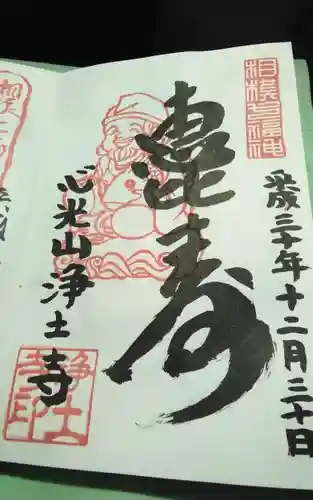 相模七福神
平成三十年十二月三十日
恵比寿
心光山浄土寺
浄土
寺印